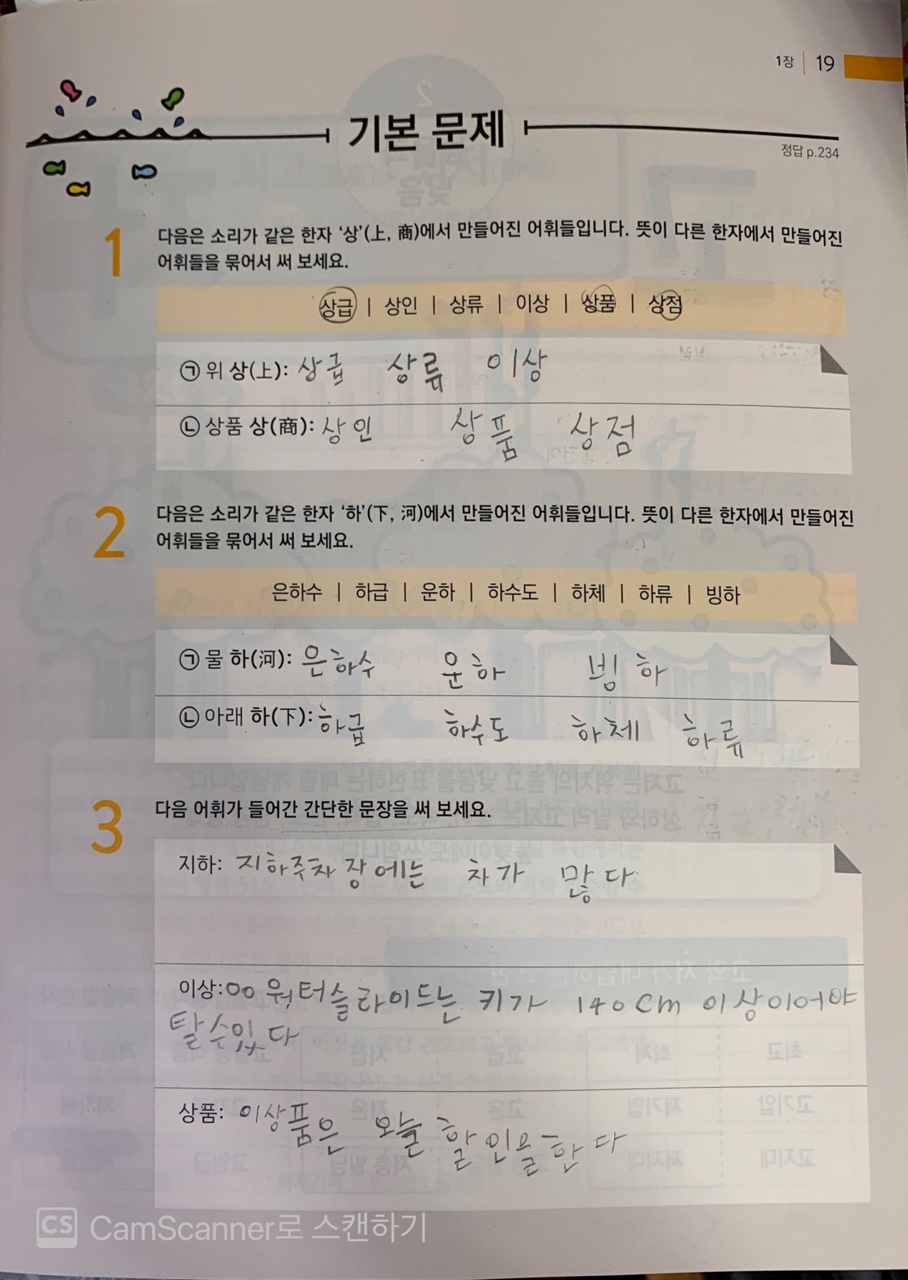 1장 | 19
기본 문제
정답 p.234
1 다음은 소리가 같은 한자 ‘상’(上, 商)에서 만들어진 어휘들입니다. 뜻이 다른 한자에서 만들어진
어휘들을 묶어서 써 보세요.
상급 | 상인 | 상류 | 이상 | 상품 | 상점
㉠ 위 상(上): 상급 상류 이상
㉡ 상품 상(商): 상인 상품 상점
2 다음은 소리가 같은 한자 ‘하’(下, 河)에서 만들어진 어휘들입니다. 뜻이 다른 한자에서 만들어진
어휘들을 묶어서 써 보세요.
은하수 | 하급 | 운하 | 하수도 | 하체 | 하류 | 빙하
㉠ 물 하(河): 은하수 운하 빙하
㉡ 아래 하(下): 하급 하수도 하체 하류
3 다음 어휘가 들어간 간단한 문장을 써 보세요.
지하: 지하주차장에는 차가 많다
이상: OO 워터슬라이드는 키가 140cm 이상이어야
탈수있다
상품: 이상품은 오늘 할인을한다
CS CamScanner로 스캔하기